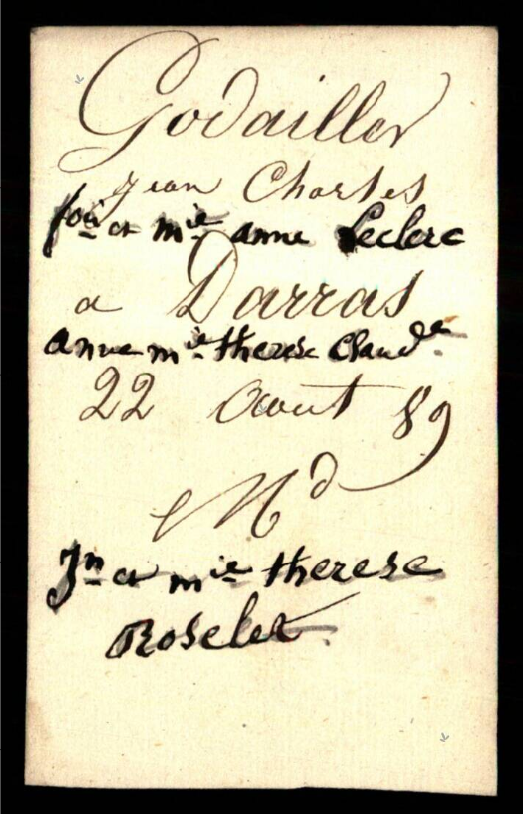 Godailler
Jean Charles
fois et mie anne Leclerc
a Darras
anne mie therese Claude
22 Aout 89
Md
Jn et mie therese
Roselet